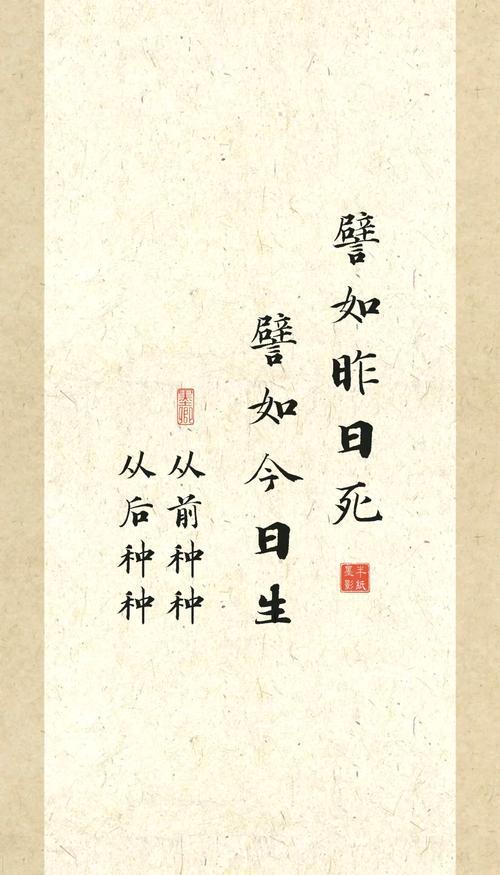 譬如昨日死
半纸
墨影
譬如今日生
墨卿
从前种种
从后种种